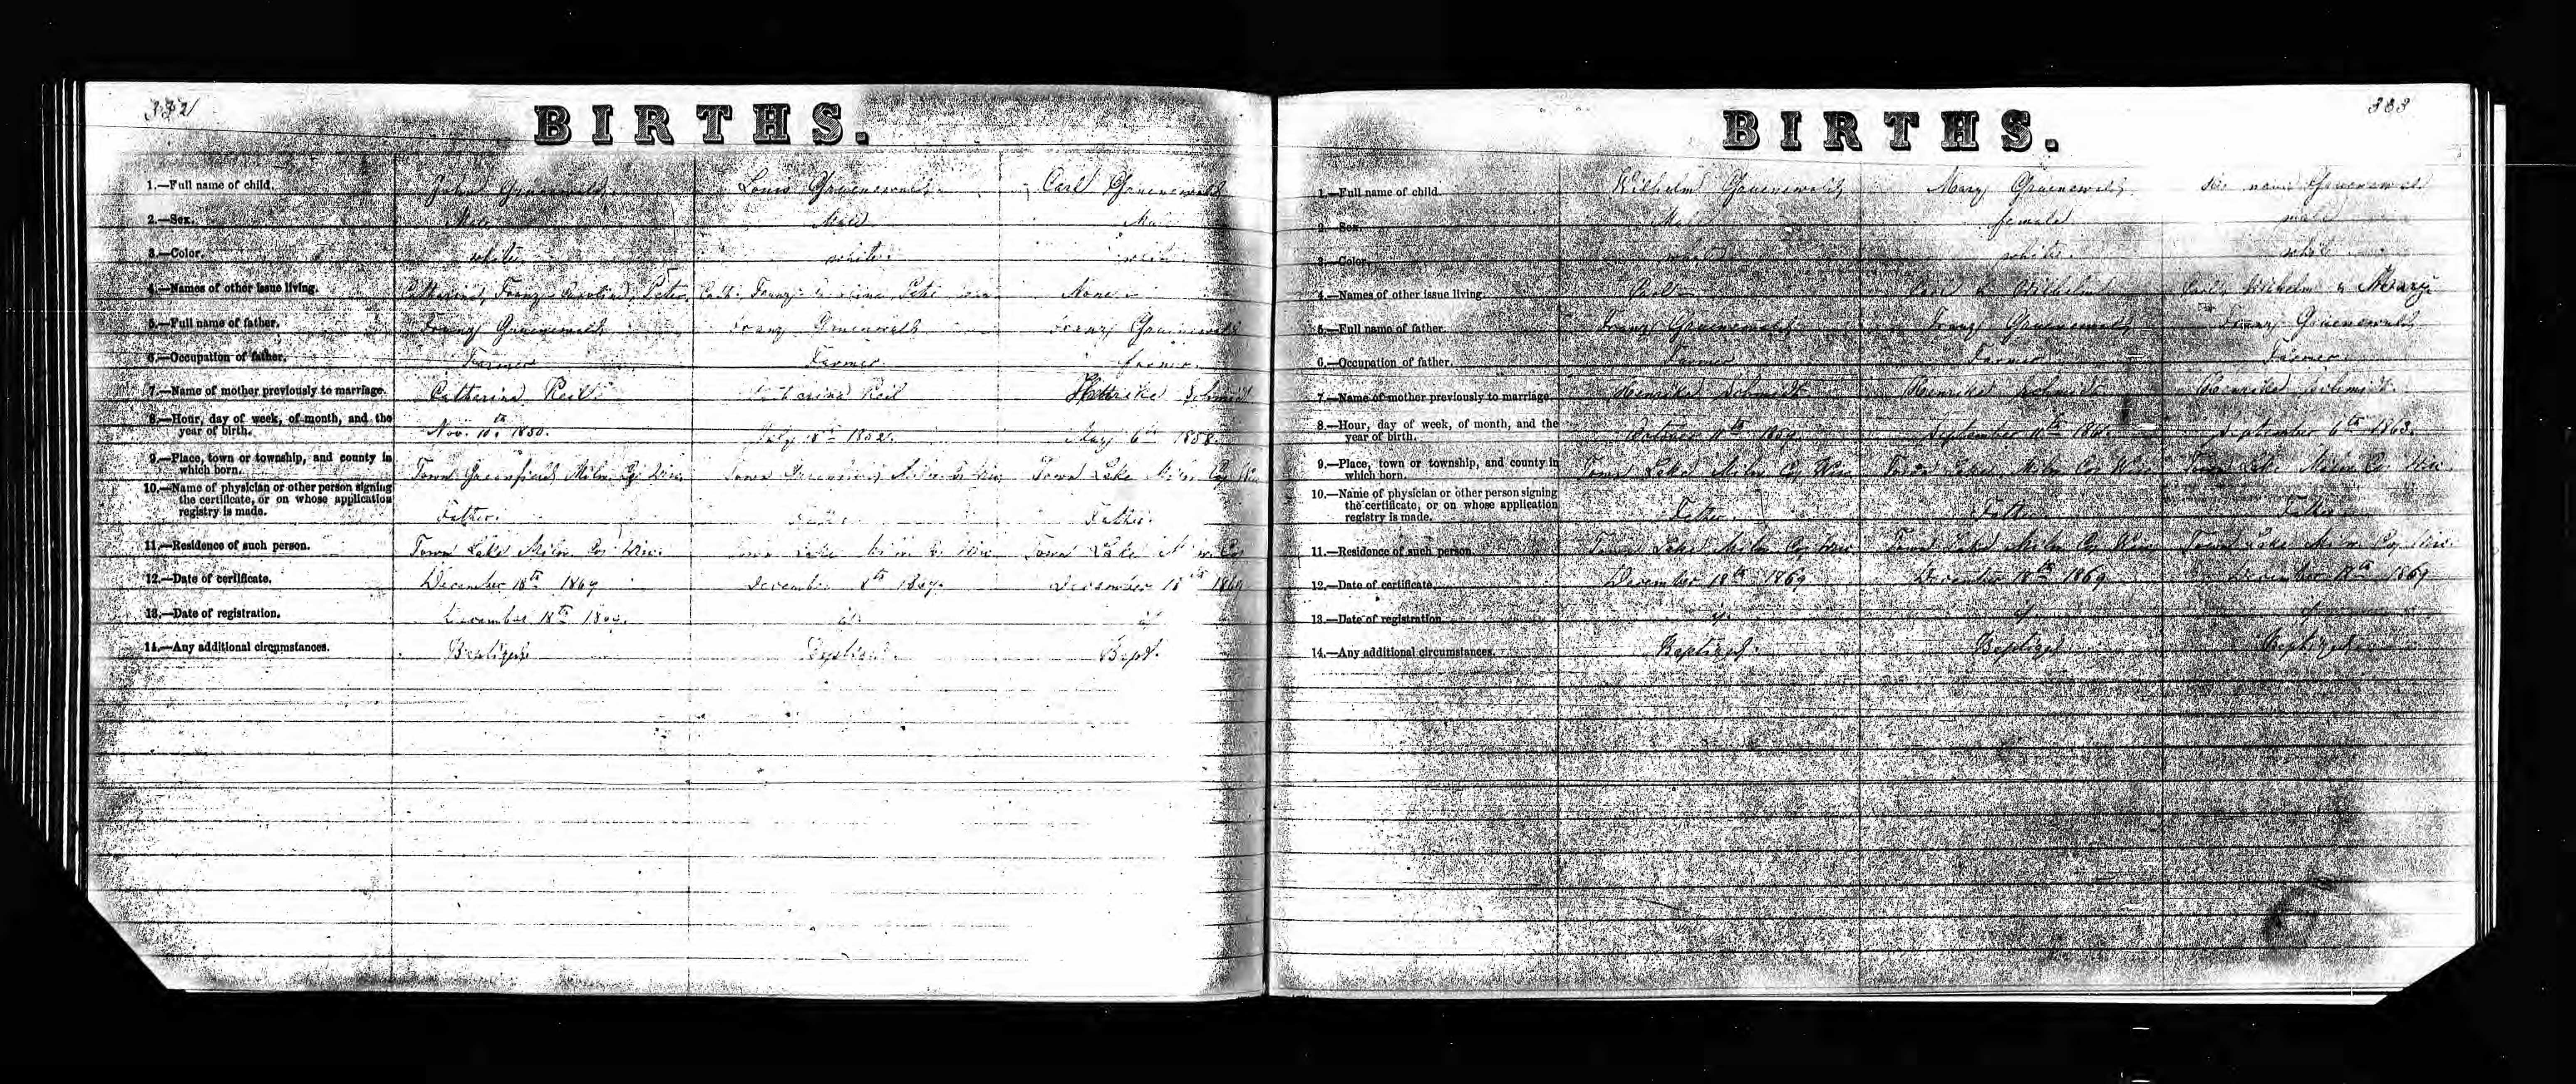 332
BIRTHS.
1.—Full name of child. John Gruenewald Louis Gruenewald Carl Gruenewald
2.—Sex. Male Male Mal
3.—Color. white white white
4.—Names of other issue living. Catherine, Franz, Caroline, Peter, Cath. Franz Peter None
5.—Full name of father. Franz Gruenewald Franz Gruenewald Franz Gruenewald
6.—Occupation of father. Farmer Farmer farmer
7.—Name of mother previously to marriage. Catherina Reil Catharina Reil Schmidt
8.—Hour, day of week, of month, and the
year of birth. Nov. 10th 1850. July 18th 1852. May 6th 1858.
9.—Place, town or township, and county in
which born. Town Greenfield, Milw. Co. Wis. Town Greenfield, Milw. Co. Wis. Town Lake Milw. Co. Wis
10.—Name of physician or other person signing
the certificate, or on whose application
registry is made. Father. Father.
11.—Residence of such person. Town Lake Milw. Co. Wis. Town Lake Milw. Co. Wis Town Lake Milw. Co
12.—Date of certificate. December 18th 1869 December 1869. December 18th 1869
13.—Date of registration. December 18th
14.—Any additional circumstances. Baptized Baptized. Bapt.
333
BIRTHS.
1.—Full name of child. Wilhelm Gruenewald Mary Gruenewald no name Gruenewald
2.—Sex. Male female male
3.—Color. white white white
4.—Names of other issue living. Carl Carl & Wilhelm Carl, Wilhelm & Mary
5.—Full name of father. Franz Gruenewald Franz Gruenewald Franz Gruenewald
6.—Occupation of father. Farmer Farmer Farmer
7.—Name of mother previously to marriage. Henrika Schmidt Henrika Schmidt Henrika Schmidt.
8.—Hour, day of week, of month, and the
year of birth. October 11th 1859 September 11th September 6th 1863.
9.—Place, town or township, and county in
which born. Town Lake Milw. Co. Wis Town Lake Milw. Co. Wis Town Lake Milw. Co. Wis.
10.—Name of physician or other person signing
the certificate, or on whose application
registry is made. Father Father Father
11.—Residence of such person. Town Lake Milw. Co. Wis Town Lake Milw. Co. Wis Town Lake Milw. Co. Wis.
12.—Date of certificate. December 18th 1869 December 18th 1869 December 18th 1869
13.—Date of registration.
14.—Any additional circumstances. Baptized. Baptized Baptized